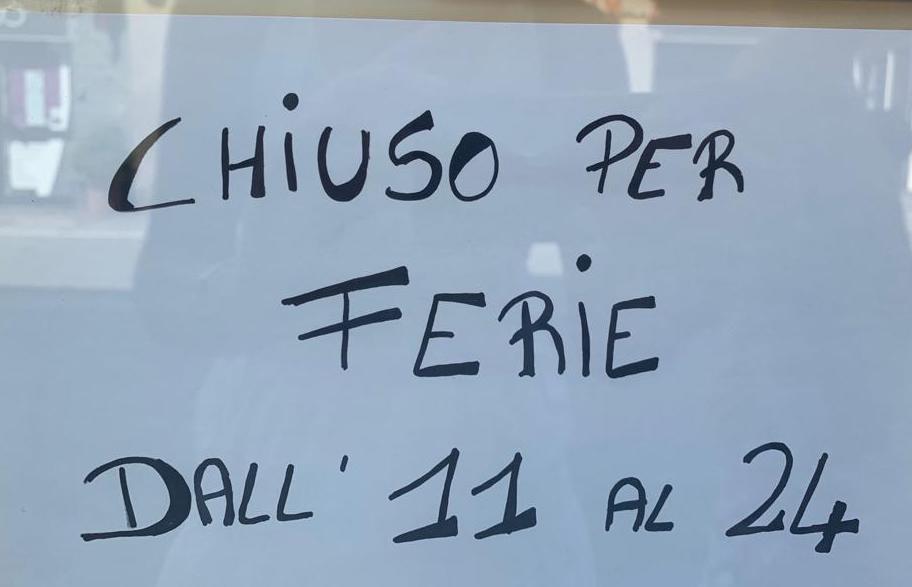 CHiUSO PER
FERiE
DALL' 11 AL 24